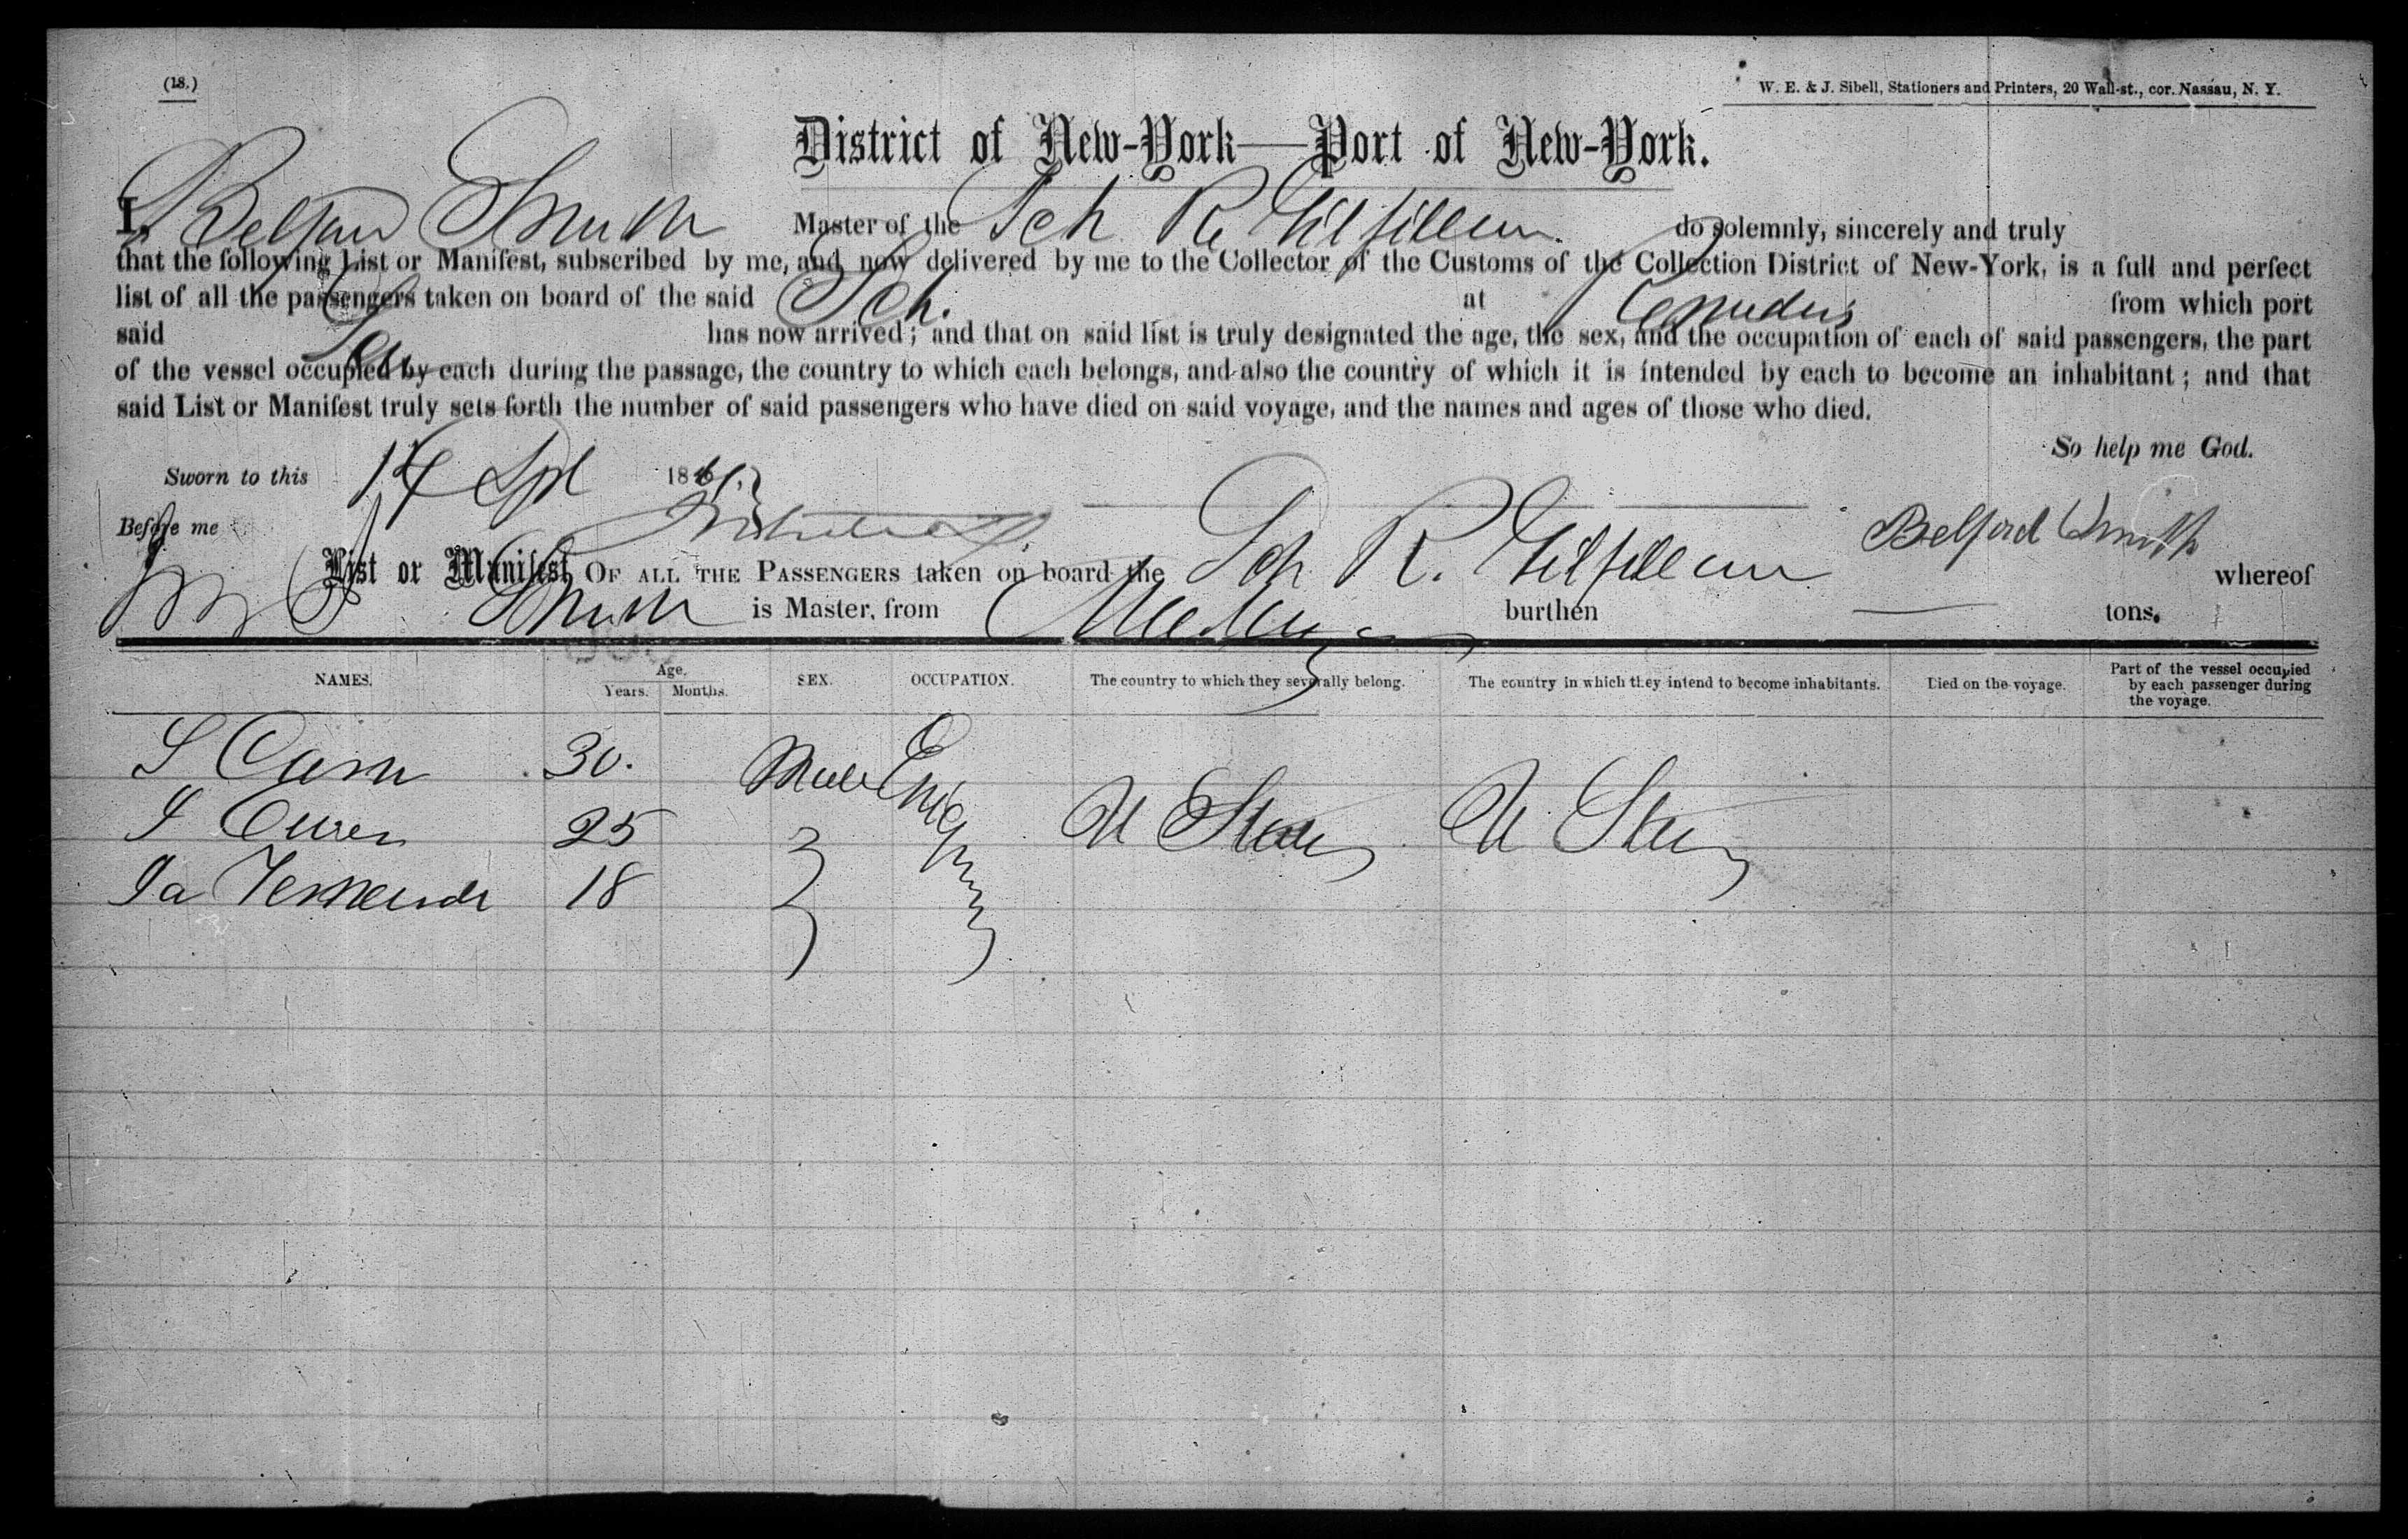 (18.)
W. E. & J. Sibell, Stationers and Printers, 20 Wall-st., cor. Nassau, N. Y.
District of New-York—Port of New-York.
I, Belford Smith Master of the Sch R. Gilfillan do solemnly, sincerely and truly
that the following List or Manifest, subscribed by me, and now delivered by me to the Collector of the Customs of the Collection District of New-York, is a full and perfect
list of all the passengers taken on board of the said Sch. at from which port
said Sch has now arrived; and that on said list is truly designated the age, the sex, and the occupation of each of said passengers, the part
of the vessel occupied by each during the passage, the country to which each belongs, and also the country of which it is intended by each to become an inhabitant; and that
said List or Manifest truly sets forth the number of said passengers who have died on said voyage, and the names and ages of those who died.
So help me God.
Sworn to this 14 186
Before me
Belford Smith
List or Manifest OF ALL THE PASSENGERS taken on board the Sch R. Gilfillan whereof
Smith is Master, from burthen tons.
NAMES. Age. Years. Months. SEX. OCCUPATION. The country to which they severally belong. The country in which they intend to become inhabitants. Died on the voyage. Part of the vessel occupied by each passenger during the voyage.
S 30. Male U States U States
S Owen 25
Ja 18